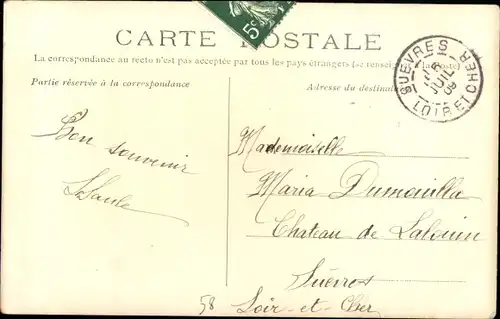 5c
CARTE POSTALE
La correspondance au recto n'est pas acceptée par tous les pays étrangers (se renseigner à la poste)
Partie réservée à la correspondance
Adresse du destina
SUEVRES
18
JUIL
09
LOIR ET CHER
Bon souvenir
Mademoiselle
Maria
Chateau de
Suèvres
58
Loir-et-Cher